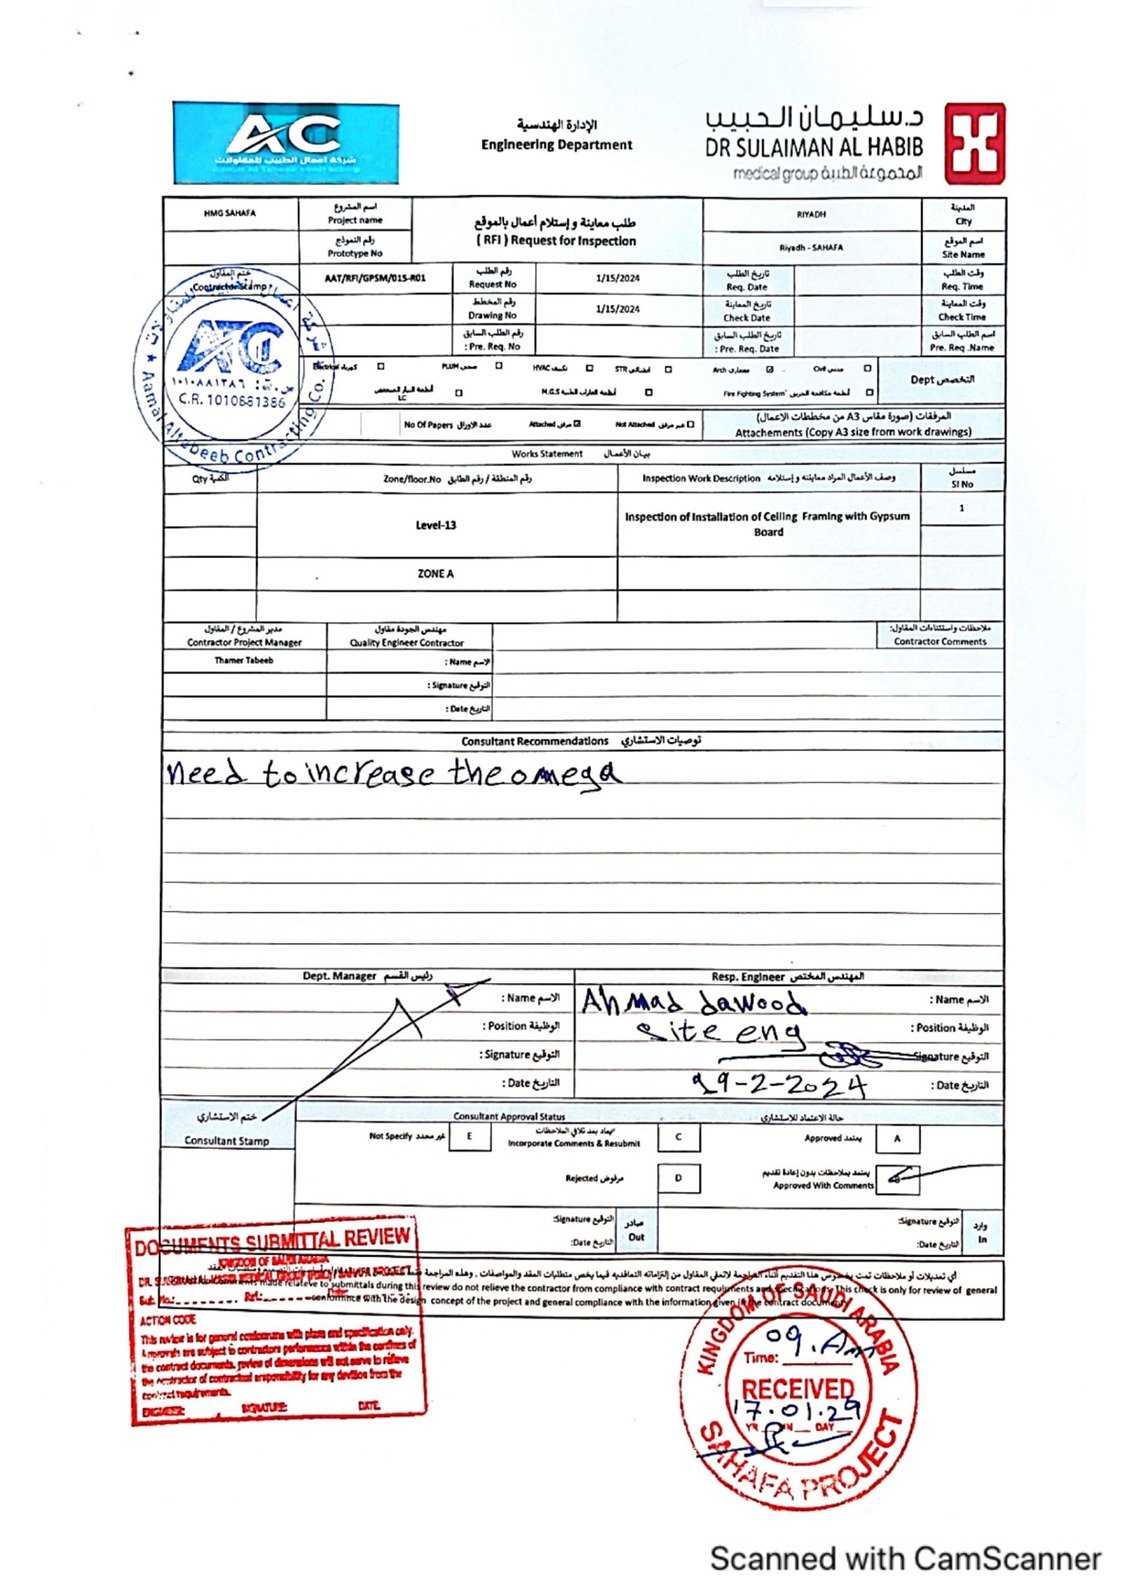 AC
شركة أعمال الطبيب للمقاولات
الإدارة الهندسية
Engineering Department
د.سليمان الحبيب
DR SULAIMAN AL HABIB
medical group المجموعة الطبية
HMG SAHAFA
اسم المشروع
Project name
طلب معاينة و إستلام أعمال بالموقع
( RFI ) Request for Inspection
RIYADH
المدينة
City
رقم النموذج
Prototype No
Riyadh - SAHAFA
اسم الموقع
Site Name
ختم المقاول
Contractor Stamp
AAT/RFI/GPSM/015-R01
رقم الطلب
Request No
1/15/2024
تاريخ الطلب
Req. Date
وقت الطلب
Req. Time
رقم المخطط
Drawing No
1/15/2024
تاريخ المعاينة
Check Date
وقت المعاينة
Check Time
رقم الطلب السابق
: Pre. Req. No
تاريخ الطلب السابق
: Pre. Req. Date
اسم الطلب السابق
Pre. Req .Name
ATC
س.ت: ١٠١٠٨٨١٣٨٦
C.R. 1010881386
Aamal AltaBeeb Contracting Co.
Electrical كهرباء
PLUM صحى
HVAC تكييف
STR انشائى
Arch معمارى
Civil مدنى
LC
M.G.S أنظمة الغازات الطبية
Fire Fighting System أنظمة مكافحة الحريق
Dept التخصص
No Of Papers عدد الاوراق
Attached مرفق
Not Attached غير مرفق
المرفقات (صورة مقاس A3 من مخططات الاعمال)
Attachements (Copy A3 size from work drawings)
Works Statement بيان الأعمال
Qty الكمية
Zone/floor.No رقم المنطقة / رقم الطابق
Inspection Work Description وصف الأعمال المراد معاينته و إستلامه
مسلسل
SI No
Level-13
Inspection of Installation of Ceiling Framing with Gypsum
Board
1
ZONE A
مدير المشروع / المقاول
Contractor Project Manager
مهندس الجودة مقاول
Quality Engineer Contractor
ملاحظات واستثناءات المقاول:
Contractor Comments
Thamer Tabeeb
: Name الاسم
: Signature التوقيع
: Date التاريخ
Consultant Recommendations توصيات الاستشاري
need to increase the omega
Dept. Manager رئيس القسم
Resp. Engineer المهندس المختص
: Name الاسم
Ahmad dawood
: Name الاسم
: Position الوظيفة
site eng
: Position الوظيفة
: Signature التوقيع
Signature التوقيع
: Date التاريخ
29-2-2024
: Date التاريخ
ختم الاستشاري
Consultant Stamp
Consultant Approval Status
حالة الاعتماد للاستشاري
Not Specify غير محدد
E
يعاد بعد تلافي الملاحظات
Incorporate Comments & Resubmit
C
Approved يعتمد
A
Rejected مرفوض
D
يعتمد بملاحظات بدون إعادة تقديم
Approved With Comments
:Signature التوقيع
صادر
Out
:Signature التوقيع
وارد
In
:Date التاريخ
:Date التاريخ
DOCUMENTS SUBMITTAL REVIEW
KINGDOM OF SAUDI ARABIA
Sub. No.:
Ref.:
ACTION CODE
This review is for general conformance with plans and specification only.
Approvals are subject to contractors performance within the confines of
the contract documents. review of dimensions will not serve to relieve
the contractor of contractual responsibility for any deviation from the
contract requirements.
ENGINEER: SIGNATURE: DATE:
أي تعديلات أو ملاحظات تمت بخصوص هذا التقديم أثناء المراجعة لاتعفي المقاول من إلتزاماته التعاقدية فيما يخص متطلبات العقد والمواصفات . وهذه المراجعة
made relateve to submittals during this review do not relieve the contractor from compliance with contract requirments and specifications. This check is only for review of general
conformence with the design concept of the project and general compliance with the information given in the contract documents
KINGDOM OF SAUDI ARABIA
Time: 09. Am
RECEIVED
17.01.29
SAHAFA PROJECT
Scanned with CamScanner